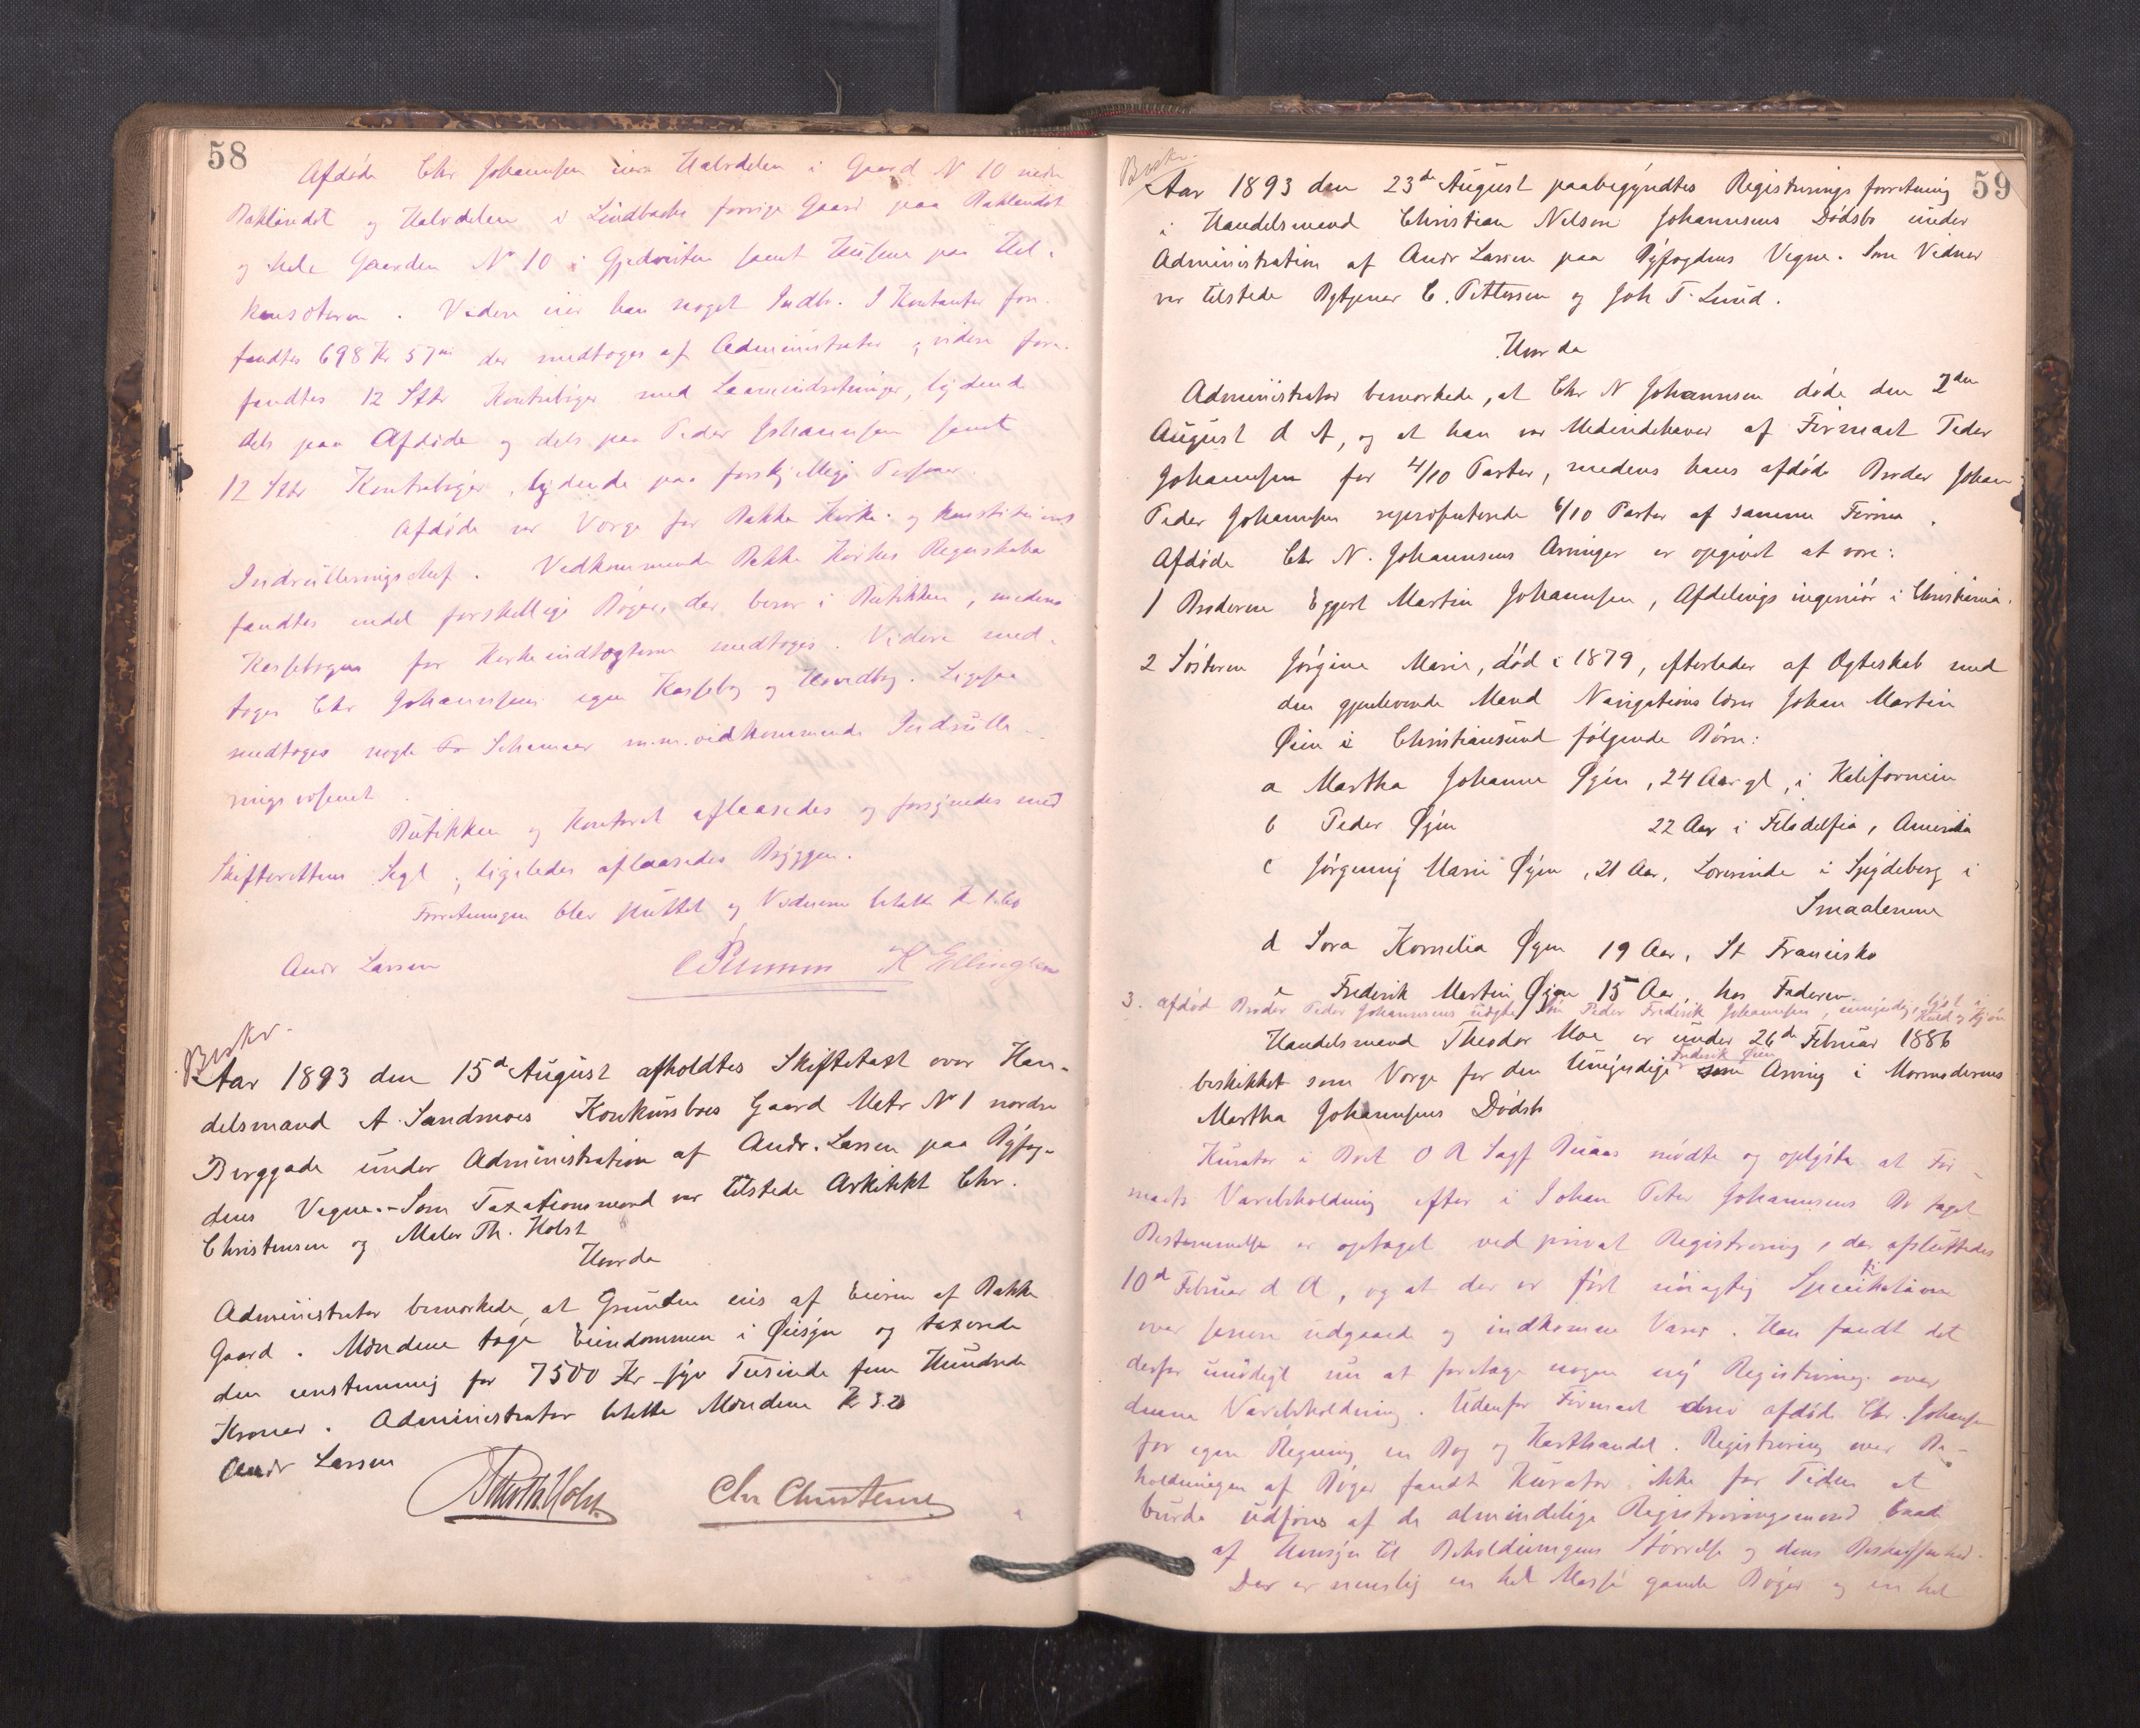 58
Afdøde Chr Johannsen eier Halvdelen i Gaard N 10 nedre
Baklandet og Halvdelen i Lindbacks forrige Gaard paa Baklandet
og hele Gaarden No 10 i Gjedveiten samt Husene paa
Videre eier han noget Indb. I Kontanter fore-
fandtes 698 Kr 57 der medtoges af Administrator; videre fore-
fandtes 12 Stkr Kontrabøger med Laaneindretninger, lydende
dels paa Afdøde og dels paa Peder Johannsen samt
12 Stkr Kontrabøger, lydende paa forskjellige Personer.
Afdøde var Værge for Bakke Kirke og konstitueret
Indrulleringschef. Vedkommende Bakke Kirkes Regnskaber
fandtes endel forskellige Bøger, der beror i Butikken, medens
Kassebogen for Kirkeindtægterne medtoges. Videre med-
toges Chr Johannsens egen Kassebog og Hovedbog. Ligesaa
medtoges nogle Schemaer m.m. vedkommende Indrulle-
ringsvæsenet.
Butikken og Kontoret aflaasedes og forsynedes med
Skifterettens Segl; ligeledes aflaasedes Bryggen.
Forretningen blev sluttet og Vidnerne betalt Kr 1.60
Andr Larsen K Ellingsen
Beskr.
Aar 1893 den 15d August afholdtes Skiftetaxt over Han-
delsmand A. Sandmoes Konkursboes Gaard Matr No 1 nordre
Berggade under Administration af Andr. Larsen paa Byfog-
dens Vegne. - Som Taxationsmænd var tilstede Arkitekt Chr.
Christensen og Maler Th. Holst
Hvorda
Administrator bemærkede, at Grunden eies af Eieren af Bakke
Gaard. Mændene toge Eiendommen i Øiesyn og taxerede
den enstemmig for 7500 Kr syv Tusinde fem Hundrede
Kroner. Administrator betalte Mændene Kr 3.20
Andr Larsen
Th. Holst Chr Christensen
59
Beskr.
Aar 1893 den 23de August paabegyndtes Registreringsforretning
i Handelsmand Christian Nelson Johannsens Dødsbo under
Administration af Andr Larsen paa Byfogdens Vegne. Som Vidner
var tilstede Bytjener C. Pettersen og Joh T. Lund.
Hvorda
Administrator bemærkede, at Chr N Johannsen døde den 2den
August d A, og at han var Medindehaver af Firmaet Peder
Johannsen for 4/10 Parter, medens hans afdøde Broder Johan
Peder Johannsen repræsenterede 6/10 Parter af samme Firma.
Afdøde Chr N. Johannsens Arvinger er opgivet at være:
1 Broderen Eggert Martin Johannsen, Afdelingsingeniør i Christiania.
2 Søsteren Jørgine Marie, død i 1879, efterleder af Ægteskab med
den gjenlevende Mand Navigationslærer Johan Martin
Øien i Christiansund følgende Børn:
a Martha Johanne Øyen, 24 Aar gl, i Kalifornien
b Peder Øyen 22 Aar i Filadelfia, Amerika
c Jørgenny Marie Øyen, 21 Aar, Lærerinde i Spydeberg i
Smaalenene
d Sara Kornelia Øyen 19 Aar, St Francisko
e Frederik Martin Øyen 15 Aar, hos Faderen.
3. Afdød Broder Peder Johannsens Søn Peder Frederik Johannsen, umyndig,
Handelsmand Theodor Moe er under 26de Februar 1886
beskikket som Værge for den Umyndige Frederik Øien som Arving i Mormoderens
Martha Johannsens Dødsb
Kurator i Boet O R Sagf Buaas mødte og oplyste at Fir-
maets Varebeholdning efter i Johan Peter Johannsens Bo taget
Bestemmelse er optaget ved privat Registrering, der afsluttedes
10d Februar d A, og at der er ført nøiagtig Specifikation
over senere udgaaede og indkomne Varer. Han fandt det
derfor unødigt nu at foretage nogen ny Registrering over
denne Varebeholdning. Udenfor Firmaet drev afdøde Chr. Johansen
for egen Regning en Bog og Karthandel. Registrering over Be-
holdningen af Bøger fandt Kurator ikke for Tiden at
burde udføres af de almindelige Registreringsmænd baade
af Hensyn til Beholdningens Størrelse og dens Beskaffenhed.
Der er nemlig en hel Masse gamle Bøger og en hel